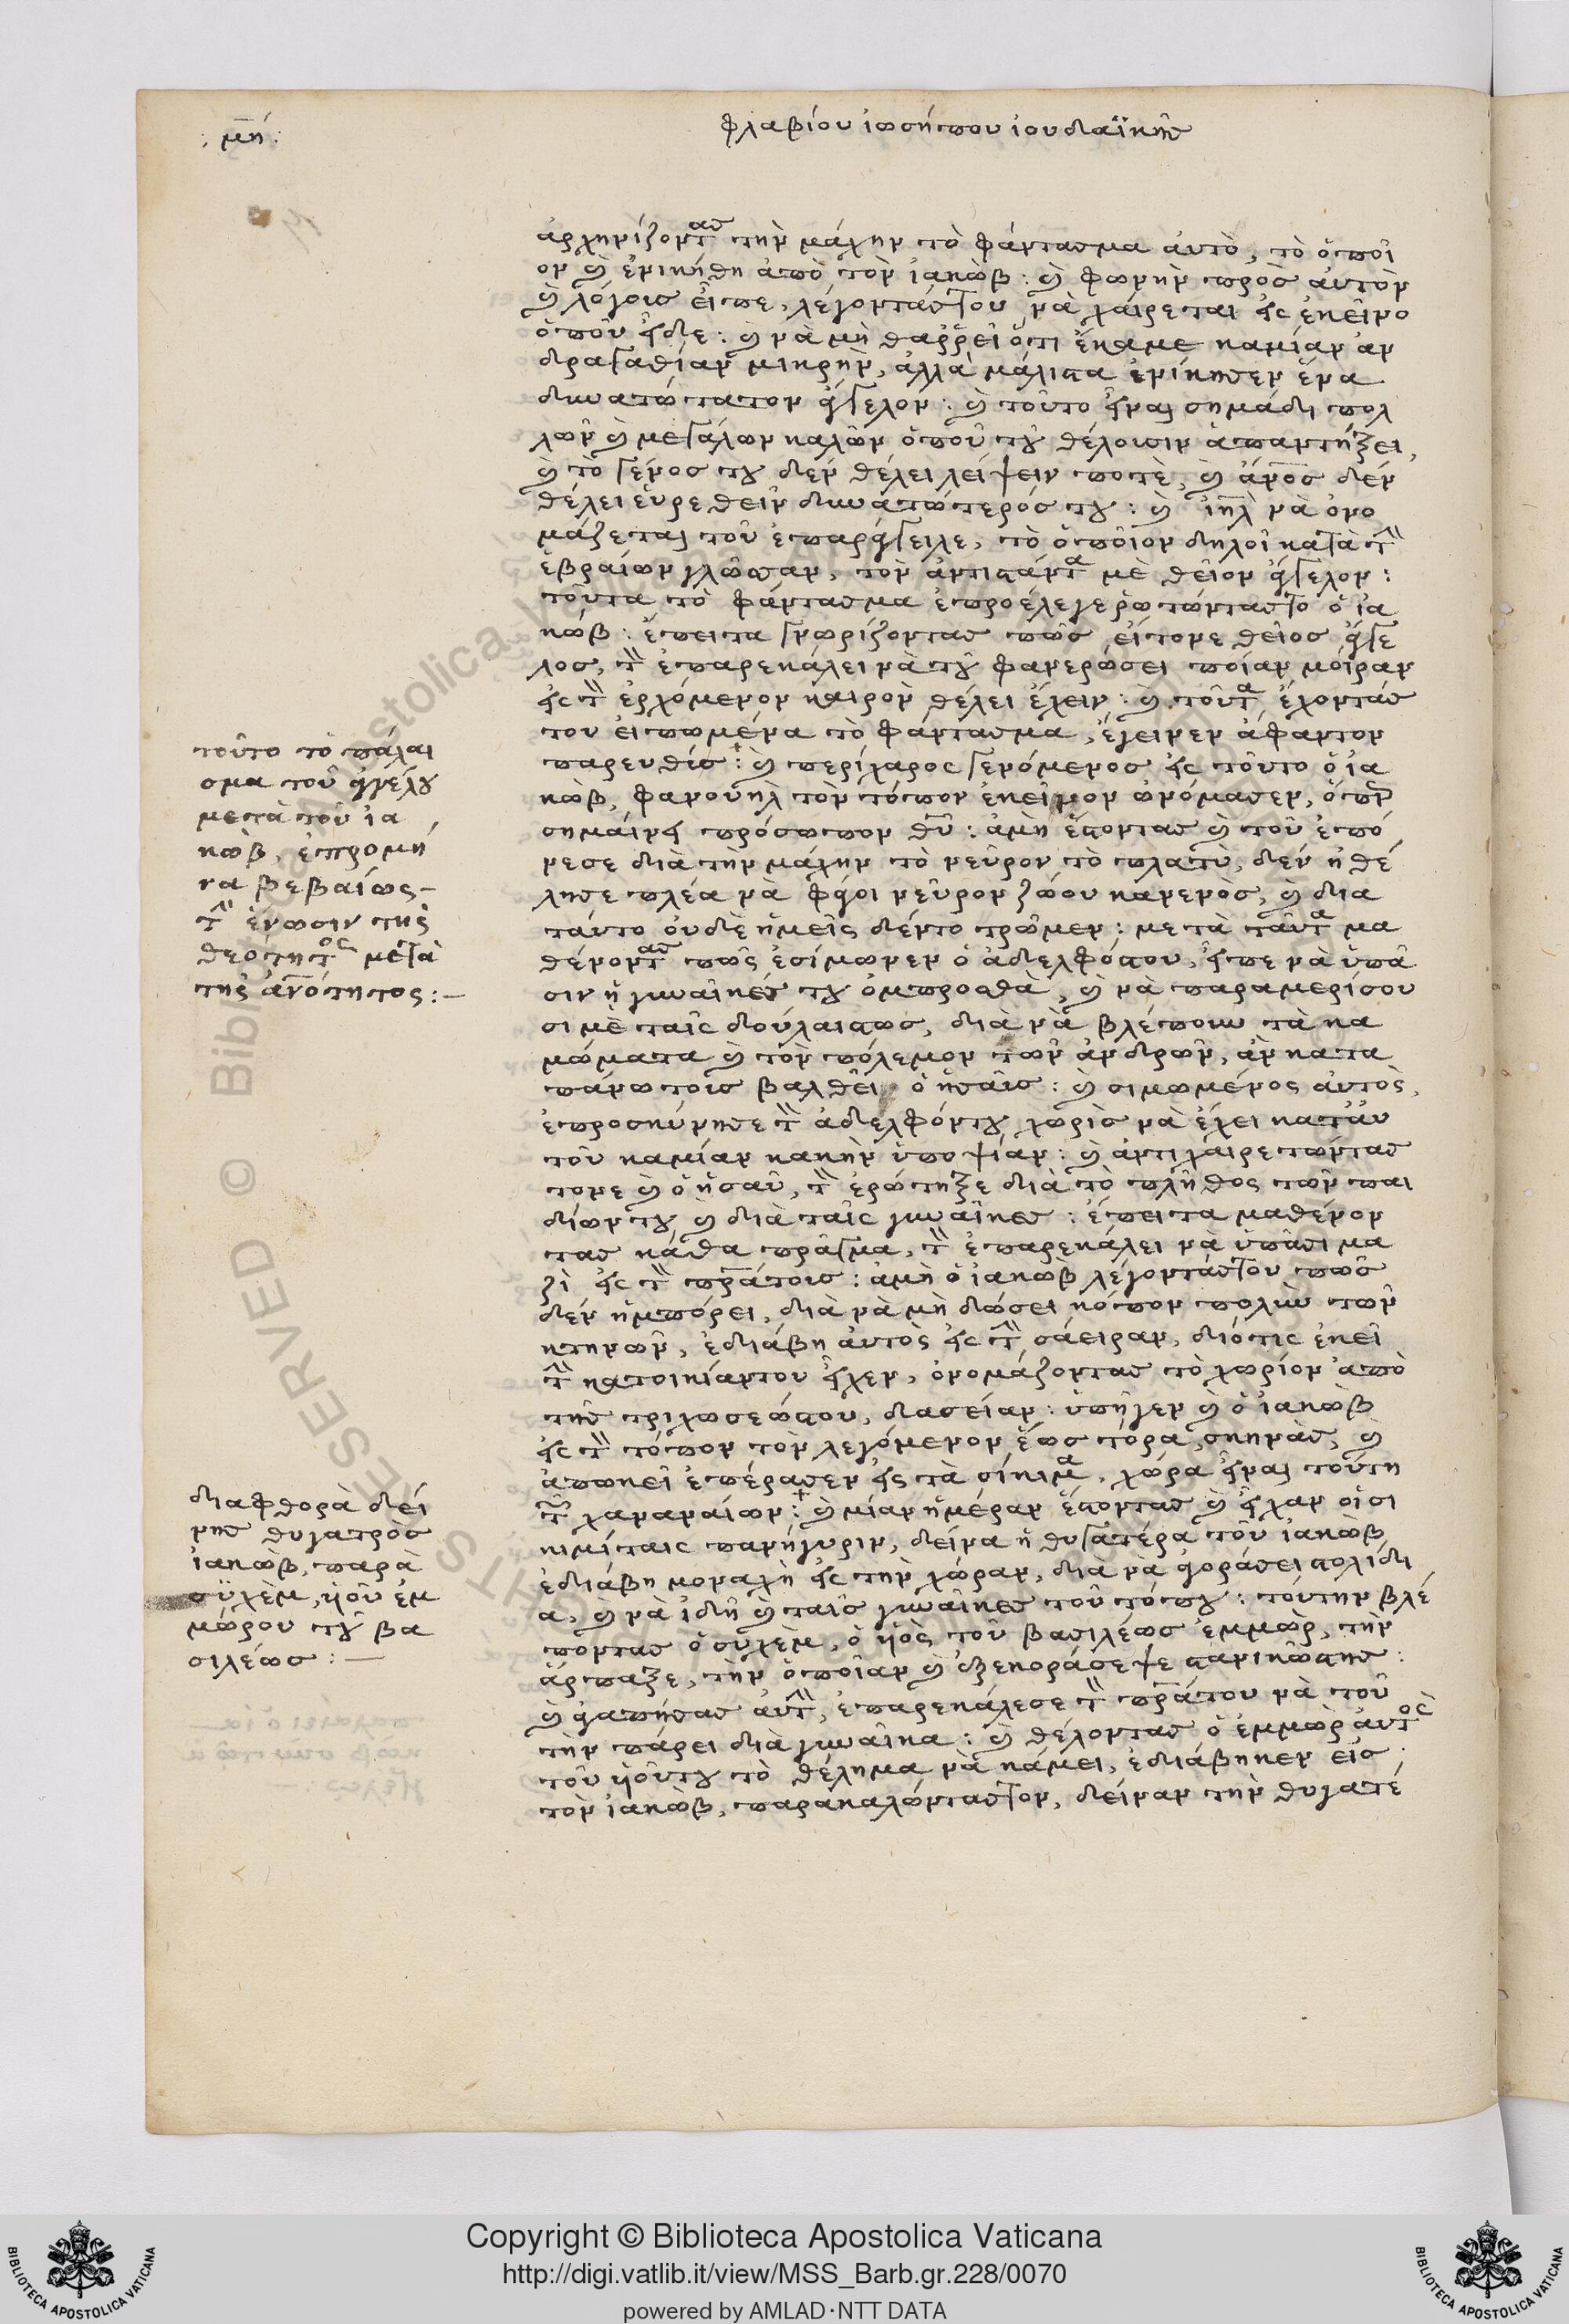 : μη :
φλαβίου ἰωσήπου ἰουδαϊκῆς
ἀρχηνίζοντας τὴν μάχην τὸ φάντασμα ἀυτὸ, τὸ ὁποῖ
ον καὶ ἐνικήθη ἀπὸ τὸν ἰακὼβ : καὶ φωνὴν πρὸς ἀυτὸν
καὶ λόγοις εἶπε, λέγοντάστου νὰ χαίρεται εἰς ἐκεῖνο
ὁποῦ εἶδε : καὶ νὰ μὴ θαρρεῖ ὅτι ἔκαμε καμίαν ἀν
δραγαθίαν μικρὴν, ἀλλὰ μάλιστα ἐνίκησεν ἕνα
δυνατώτατον ἄγγελον : καὶ τοῦτο εἶναι σημάδι πολ
λῶν καὶ μεγάλων καλῶν ὁποῦ τοῦ θέλουσιν ἀπαντήξει,
καὶ τὸ γένος του δὲν θέλει λείψειν ποτὲ, καὶ ἄνος δὲν
θέλει ἑυρεθεῖν δυνατώτερός του : καὶ ἰηλ νὰ ὀνο
μάζεται τοῦ ἐπαράγγειλε, τὸ ὁποῖον δηλοῖ κατὰ τὴν
ἑβραίων γλῶσσαν, τὸν ἀντιστάντα μὲ θεῖον ἄγγελον :
τοῦτα τὸ φάντασμα ἐπροέλεγε ῥωτώντάςτο ὁ ἰα
κώβ : ἔπειτα γνωρίζοντας πῶς εἴτονε θεῖος ἄγγε
λος, τὸν ἐπαρεκάλει νὰ τοῦ φανερώσει ποίαν μοῖραν
εἰς τὸν ἐρχόμενον καιρὸν θέλει ἔχειν : καὶ τοῦτα ἔχοντάς
του εἰπωμένα τὸ φάντασμα, ἔγεινεν ἄφαντον
παρευθίς : καὶ περίχαρος γενόμενος εἰς τοῦτο ὁ ἰα
κὼβ, φανουὴλ τὸν τόπον ἐκεῖνον ὠνόμασεν, ὅπερ
σημαίνει πρόσωπον θῦ : ἀμὴ ἔστοντας καὶ τοῦ ἐπό
νεσε διὰ τὴν μάχην τὸ νεῦρον τὸ πλατὺ, δὲν ἠθέ
λησε πλέα νὰ φάγοι νεῦρον ζώου κανενὸς, καὶ δια
τάυτο οὐδὲ ἡμεῖς δέντο τρῶμεν : μετὰ ταῦτα μα
θένοντας πῶς ἐσίμωνεν ὁ ἀδελφόστου, εἶπε νὰ ὑπᾶ
σιν ἡ γυναῖκές του ὀμπροσθὰ, καὶ νὰ παραμερίσου
σι μὲ ταῖς δούλαιςτως, διὰ νὰ βλέπουν τὰ κα
μώματα καὶ τὸν πόλεμον τῶν ἀνδρῶν, ἀν κατα
πάνω τοις βαλθεῖ ὁ ἡσᾶις : καὶ σιμωμένος ἀυτὸς,
ἐπροσκύνησε τὸν ἀδελφόντου χωρὶς νὰ ἔχει κατάυ
τοῦ καμίαν κακὴν ὑποψίαν : καὶ ἀντιχαιρετώντας
τονε καὶ ὁ ἡσαῦ, τὸν ἐρώτηξε διὰ τὸ πλῆθος τῶν παι
δίων του καὶ διὰ ταῖς γυναῖκες : ἔπειτα μαθένον
τας κάθα πρᾶγμα, τὸν ἐπαρεκάλει νὰ ὑπᾶσι μα
ζὶ εἰς τὸν πρᾶτοις : ἀμὴ ὁ ἰακὼβ λέγοντάστου πῶς
δὲν ἠμπόρει, διὰ νὰ μὴ δώσει κόπον πολὺν τῶν
κτηνῶν, ἐδιάβη ἀυτὸς εἰς τὴν σάειραν, διότις ἐκεῖ
τὴν κατοικίαντου εἶχεν, ὀνομάζοντας τὸ χωρίον ἀπὸ
τῆς τριχωσεώςτου, δασείαν : ὑπῆγεν καὶ ὁ ἰακὼβ
εἰς τὸν τόπον τὸν λεγόμενον ἕως τόρα, σκηνὰς, καὶ
ἀπωκεῖ ἐπέρασεν εἰς τὰ σίκιμα, χώρα εἶναι τούτη
τῶν χαναναίων : καὶ μίαν ἡμέραν ἔστοντας καὶ εἶχαν οἱ σι
κιμίταις πανήγυριν, δείνα ἡ θυγατέρα τοῦ ἰακὼβ
ἐδιάβη μοναχὴ εἰς τὴν χώραν, διὰ νὰ ἀγοράσει στολίδι
α, καὶ νὰ ἰδῆ καὶ ταῖς γυναῖκες τοῦ τόπου : τούτην βλέ
ποντας ὁ συχὲμ, ὁ ὑιὸς τοῦ βασιλέως ἐμμὼρ, τὴν
ἅρπαξε, τὴν ὁποῖαν καὶ ἐξεκοράσεψε στανικῶςτης :
καὶ ἀγαπήσας ἀυτὴν, ἐπαρεκάλεσε τὸν πρᾶτου νὰ τοῦ
τὴν πάρει διὰ γυναῖκα : καὶ θέλοντας ὁ ἐμμὼρ ἀυτὸς
τοῦ ὑιοῦντου τὸ θέλημα νὰ κάμει, ἐδιάβηκεν εἰς
τὸν ἰακὼβ, παρακαλώντάστον, δείναν τὴν θυγατέ
τοῦτο τὸ πάλαι
σμα τοῦ ἀγγέλου
μετὰ τοῦ ἰα
κὼβ, ἐπρομή
να βεβαίως –
τὴν ἕνωσιν τῆς
θεότητος μετὰ
τῆς ἀνότητος : –
διαφθορὰ δεί
νης θυγατρὸς
ἰακὼβ, παρὰ
συχὲμ, ὑιοῦ ἐμ
μώρου τοῦ βα
σιλέως : —
Copyright © Biblioteca Apostolica Vaticana
http://digi.vatlib.it/view/MSS_Barb.gr.228/0070
powered by AMLAD·NTT DATA
BIBLIOTECA APOSTOLICA VATICANA
BIBLIOTECA APOSTOLICA VATICANA